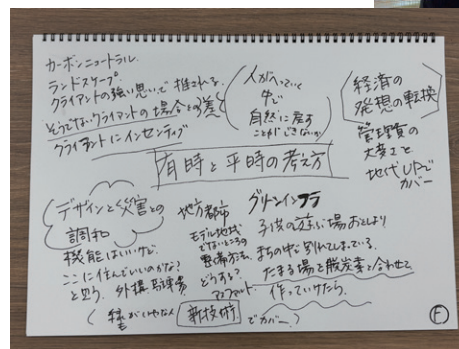 カーボンニュートラル
ランドスケープ
クライアントの強い思いで推される。
そうでないクライアントの場合との差
クライアントにインセンティブ
人が入っていく
中で
自然に戻す
ことができないか
経済の
発想の転換
管理費の
大変さと
地代UPで
カバー
有時と平時の考え方
デザインと災害との
調和
機能はいいけど、
ここに住んでいいのかな?
と思う。外構 駐車場
(緑がいやな人 新技術 でカバー)
地方都市
モデル地域
でないところの
整備方法、
どうする?
アスファルト
グリーンインフラ
子供の遊ぶ場おとしより
まちの中で別れてしまっている、
たまる場を脱炭素と合わせて
作っていけたら、
F